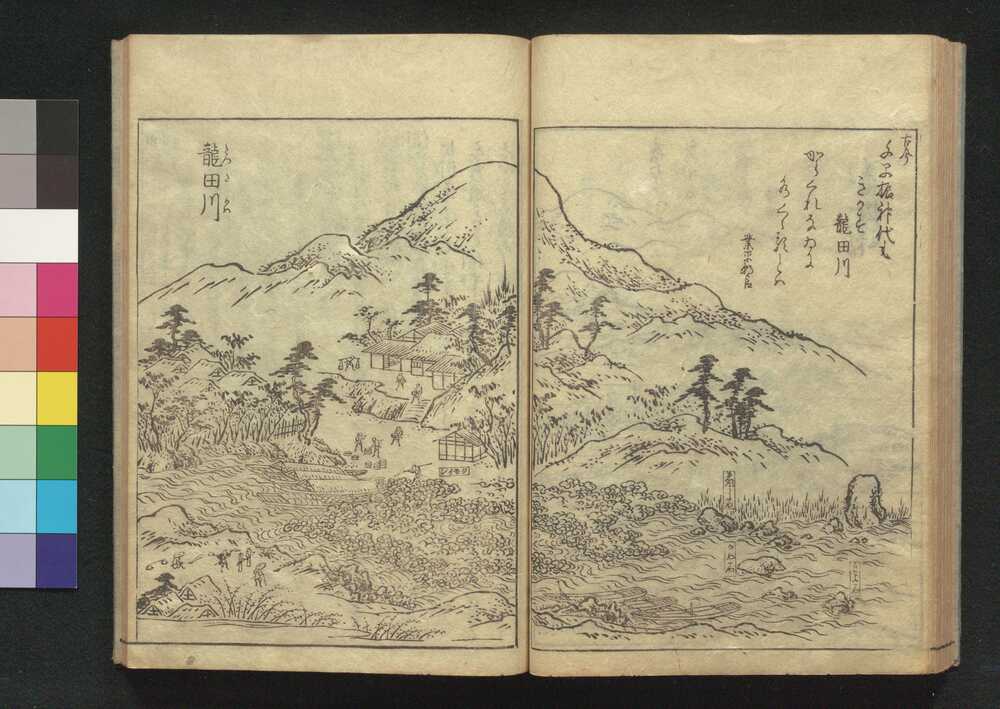 古今
千早振神代も
きかず
龍田川
からくれなゐに
水くゝるとは
業平朝臣
龍田川
たつたかは